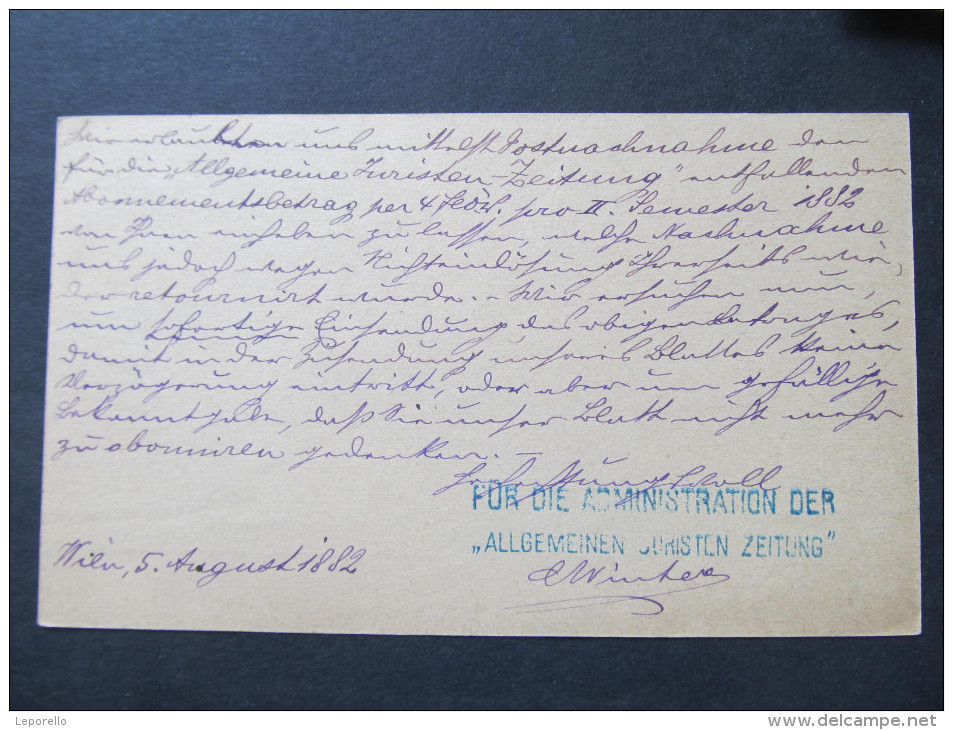 Wir erlaubten uns mittelst Postnachnahme den
für die „Allgemeine Juristen-Zeitung" entfallenden
Abonnementsbetrag per 4 fl ö.W. pro II. Semester 1882
von Ihnen einheben zu lassen, welche Nachnahme
uns jedoch wegen Nichteinlösung Ihrerseits wie,
der retournirt wurde. – Wir ersuchen nun,
um sofortige Einsendung des obigen Betrages,
damit in der Zusendung unseres Blattes keine
Verzögerung eintritt, oder aber um gefällige
Bekanntgabe, daß Sie unser Blatt nicht mehr
zu aboniren gedenken. –
Hochachtungsvoll
FÜR DIE ADMINISTRATION DER
„ALLGEMEINEN JURISTEN ZEITUNG"
Wien, 5. August 1882
Winter
Leporello
www.delcampe.net